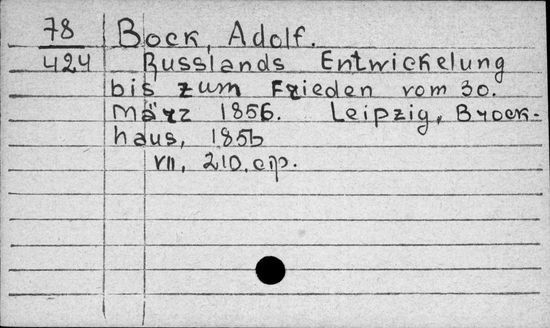 78 Bock, Adolf.
424 Russlands Entwickelung
bis zum Frieden vom 30.
März 1856. Leipzig, Brock-
haus, 1856
VII, 210. cip.